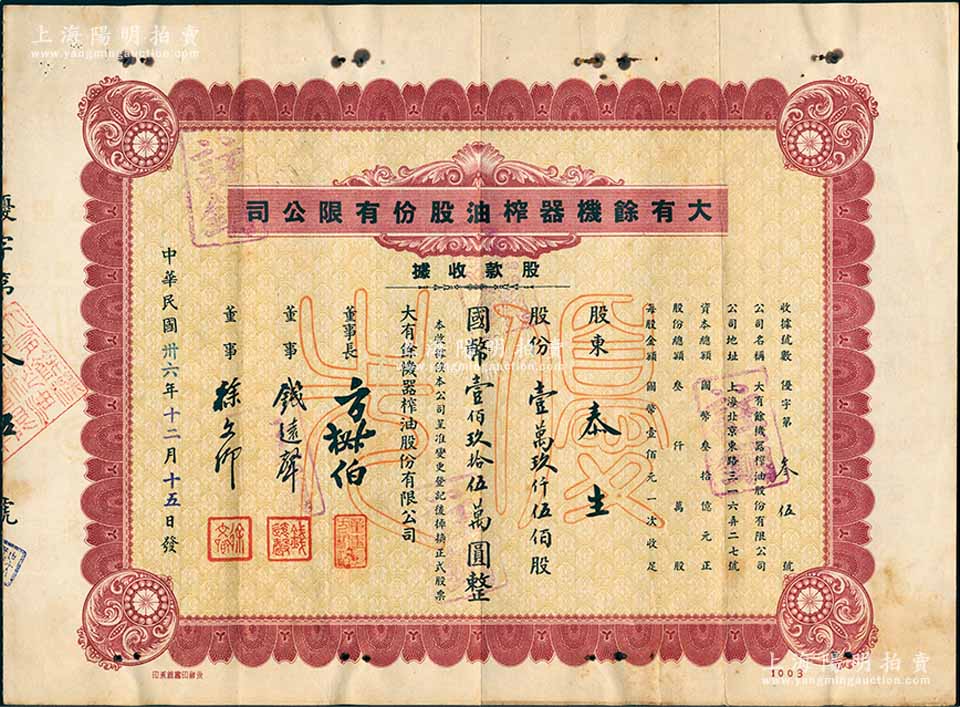 上海陽明拍賣
www.yangmingauction.com
大有餘機器榨油股份有限公司
股款收據
收據號數 優字第 叁伍 號
公司名稱 大有餘機器榨油股份有限公司
公司地址 上海北京東路三一六弄二七號
資本總額 國幣叁拾億元正
股份總額 叁仟萬股
每股金額 國幣壹佰元一次收足
股東 泰生
股份 壹萬玖仟伍佰股
國幣壹佰玖拾伍萬圓整
本收據俟本公司呈准變更登記後掉換正式股票
大有餘機器榨油股份有限公司
董事長 方椒伯
董事 錢遠聲
董事 徐文卿
中華民國卅六年十二月十五日發
優字第叁伍號
註銷
1003
上海陽明拍賣
www.yangmingauction.com